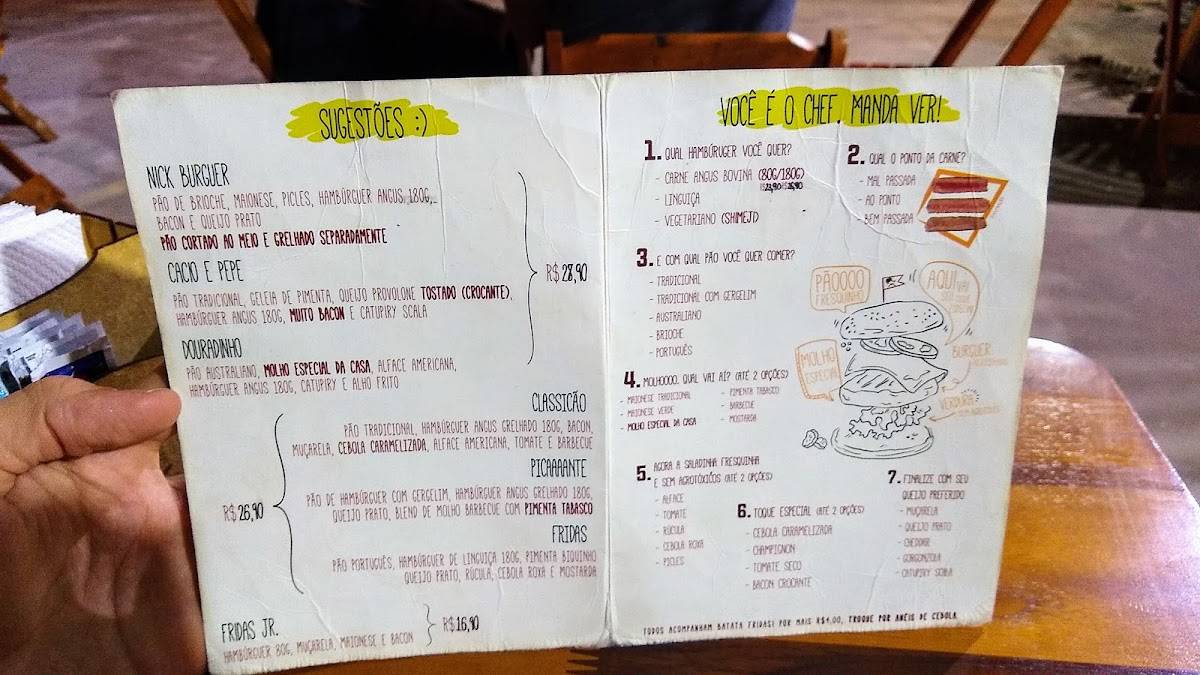 SUGESTÕES :)
NICK BURGUER
PÃO DE BRIOCHE, MAIONESE, PICLES, HAMBÚRGUER ANGUS 180G,
BACON E QUEIJO PRATO
PÃO CORTADO AO MEIO E GRELHADO SEPARADAMENTE
CACIO E PEPE
PÃO TRADICIONAL, GELEIA DE PIMENTA, QUEIJO PROVOLONE TOSTADO (CROCANTE),
HAMBÚRGUER ANGUS 180G, MUITO BACON E CATUPIRY SCALA
DOURADINHO
PÃO AUSTRALIANO, MOLHO ESPECIAL DA CASA, ALFACE AMERICANA,
HAMBÚRGUER ANGUS 180G, CATUPIRY E ALHO FRITO
R$ 28,90
CLASSICÃO
PÃO TRADICIONAL, HAMBÚRGUER ANGUS GRELHADO 180G, BACON,
MUÇARELA, CEBOLA CARAMELIZADA, ALFACE AMERICANA, TOMATE E BARBECUE
PICAAAANTE
PÃO DE HAMBÚRGUER COM GERGELIM, HAMBÚRGUER ANGUS GRELHADO 180G,
QUEIJO PRATO, BLEND DE MOLHO BARBECUE COM PIMENTA TABASCO
FRIDAS
PÃO PORTUGUÊS, HAMBÚRGUER DE LINGUIÇA 180G, PIMENTA BIQUINHO
QUEIJO PRATO, RÚCULA, CEBOLA ROXA E MOSTARDA
R$ 26,90
FRIDAS JR.
HAMBÚRGUER 80G, MUÇARELA, MAIONESE E BACON
R$ 16,90
VOCÊ É O CHEF, MANDA VER!
1. QUAL HAMBÚRUGER VOCÊ QUER?
- CARNE ANGUS BOVINA (80G/180G)
- LINGUIÇA
- VEGETARIANO (SHIMEJI)
2. QUAL O PONTO DA CARNE?
- MAL PASSADA
- AO PONTO
- BEM PASSADA
3. E COM QUAL PÃO VOCÊ QUER COMER?
- TRADICIONAL
- TRADICIONAL COM GERGELIM
- AUSTRALIANO
- BRIOCHE
- PORTUGUÊS
PÃOOOO
FRESQUINHO
AQUI VAI
MOLHO
ESPECIAL
BURGUER
VERDURA
4. MOLHOOOO, QUAL VAI AÍ? (ATÉ 2 OPÇÕES)
- MAIONESE TRADICIONAL
- MAIONESE VERDE
- MOLHO ESPECIAL DA CASA
- PIMENTA TABASCO
- BARBECUE
- MOSTARDA
5. AGORA A SALADINHA FRESQUINHA
E SEM AGROTÓXICOS (ATÉ 2 OPÇÕES)
- ALFACE
- TOMATE
- RÚCULA
- CEBOLA ROXA
- PICLES
6. TOQUE ESPECIAL (ATÉ 2 OPÇÕES)
- CEBOLA CARAMELIZADA
- CHAMPIGNON
- TOMATE SECO
- BACON CROCANTE
7. FINALIZE COM SEU
QUEIJO PREFERIDO
- MUÇARELA
- QUEIJO PRATO
- CHEDDAR
- GORGONZOLA
- CATUPIRY SCALA
TODOS ACOMPANHAM BATATA FRIDAS! POR MAIS R$4,00, TROQUE POR ANÉIS DE CEBOLA